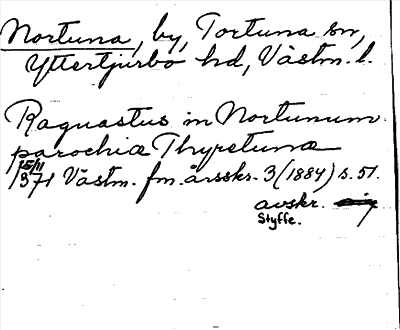 Nortuna, by, Tortuna sn,
Yttertjurbo hd, Västm. l.
Raguastus in Nortunum
parochia Thyrstuna
15/11
1371 Västm. fm. årsskr. 3 (1884) s. 51.
avskr.
Styffe.